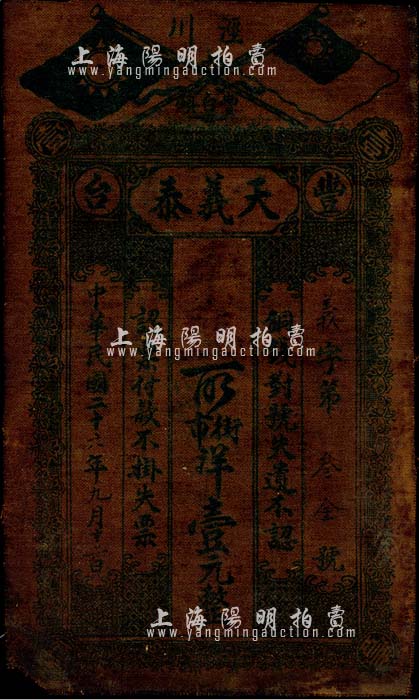 上海陽明拍賣
www.yangmingauction.com
川涇
豐
天義泰
台
義字第 叁 號
對號失遺不認
街市洋壹元
認票付畝不掛失票
中華民國二十六年九月十 日
上海陽明拍賣
www.yangmingauction.com
上海陽明拍賣
www.yangmingauction.com